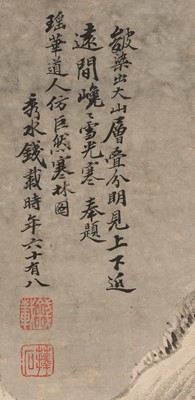 皴染出大山層疊分明見上下近
遠間嶢嶢雪光寒 奉題
瑤華道人仿巨然寒林圖
秀水錢載時年六十有八
錢載
蘀石